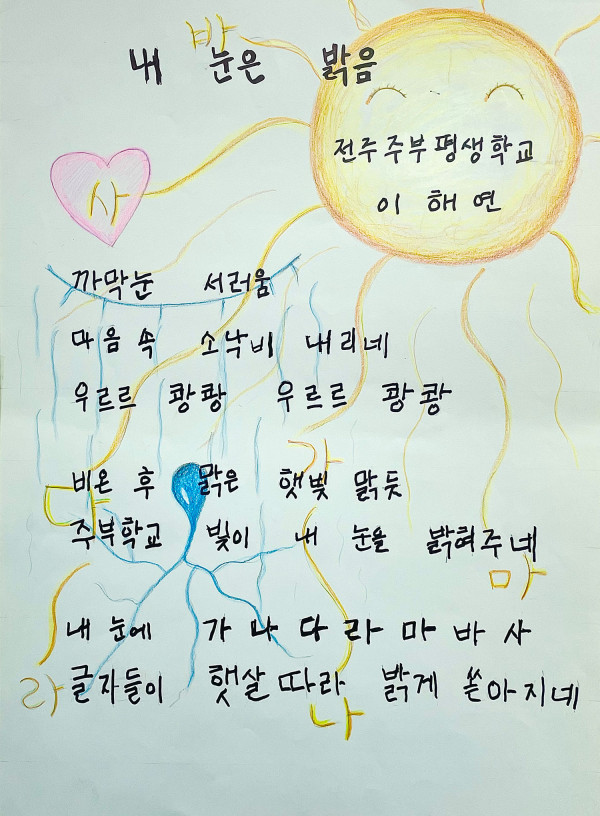 내 눈은 밝음
전주주부평생학교
이해연
까막눈 서러움
마음 속 소낙비 내리네
우르르 쾅쾅 우르르 쾅쾅
비온 후 맑은 햇빛 맑듯
주부학교 빛이 내 눈을 밝혀주네
내 눈에 가 나 다 라 마 바 사
글자들이 햇살따라 밝게 쏟아지네
바
사
가
다
마
라
나